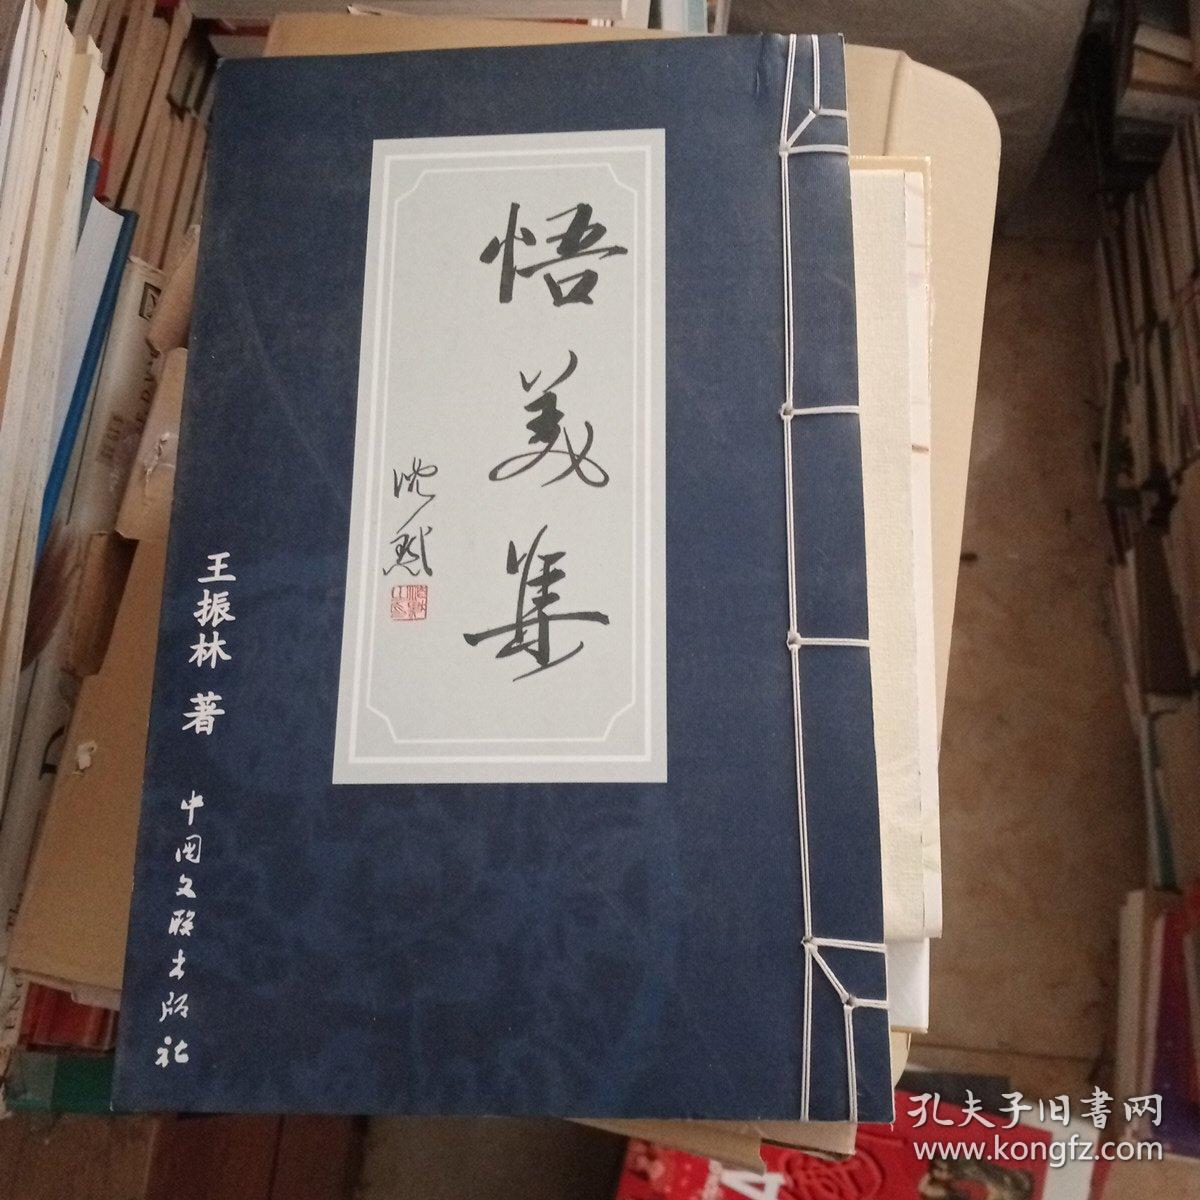 悟美集
沈鹏
王振林 著
中国文联出版社
孔夫子旧书网
www.kongfz.com